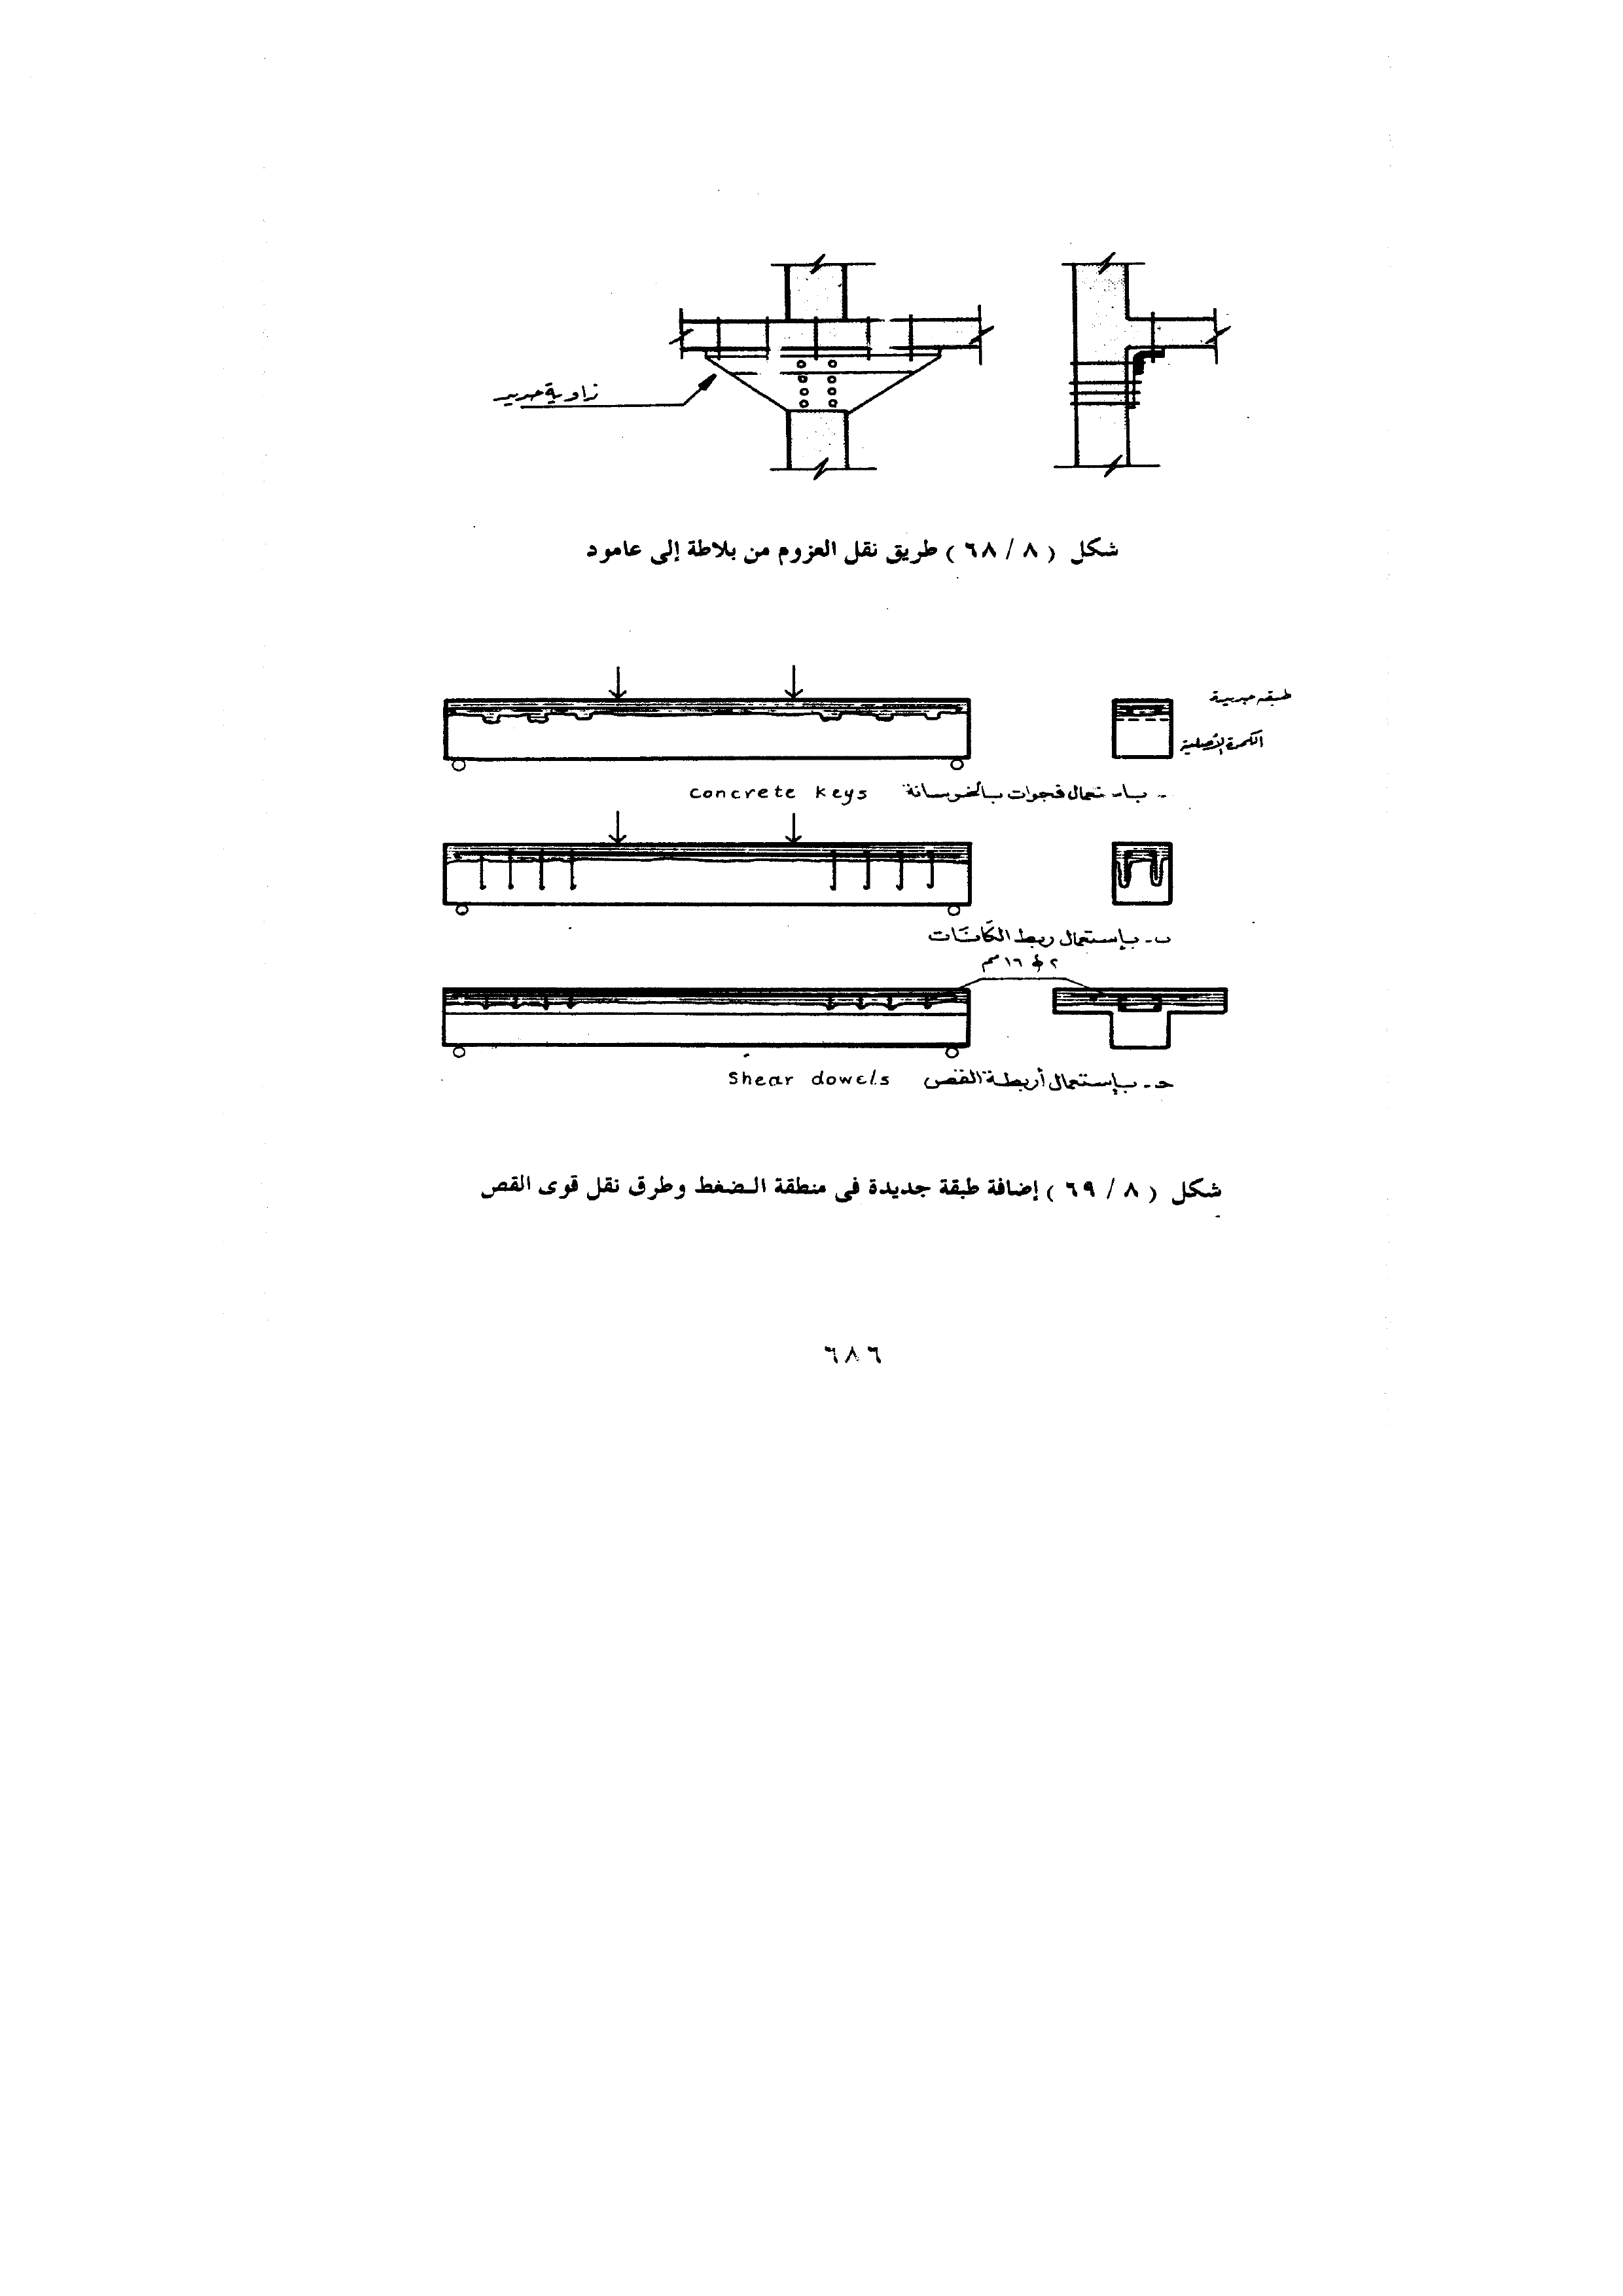 زاوية حديد
شكل ( ٨ / ٦٨ ) طريق نقل العزوم من بلاطة إلى عامود
طبقة جديدة
الكمرة الأصلية
- باستعمال فجوات بالخرسانة concrete keys
ب - بإستعمال ربط الكانات
٢ ɸ ١٦ مم
حـ - بإستعمال أربطة القص Shear dowels
شكل ( ٨ / ٦٩ ) إضافة طبقة جديدة فى منطقة الضغط وطرق نقل قوى القص
٦٨٦